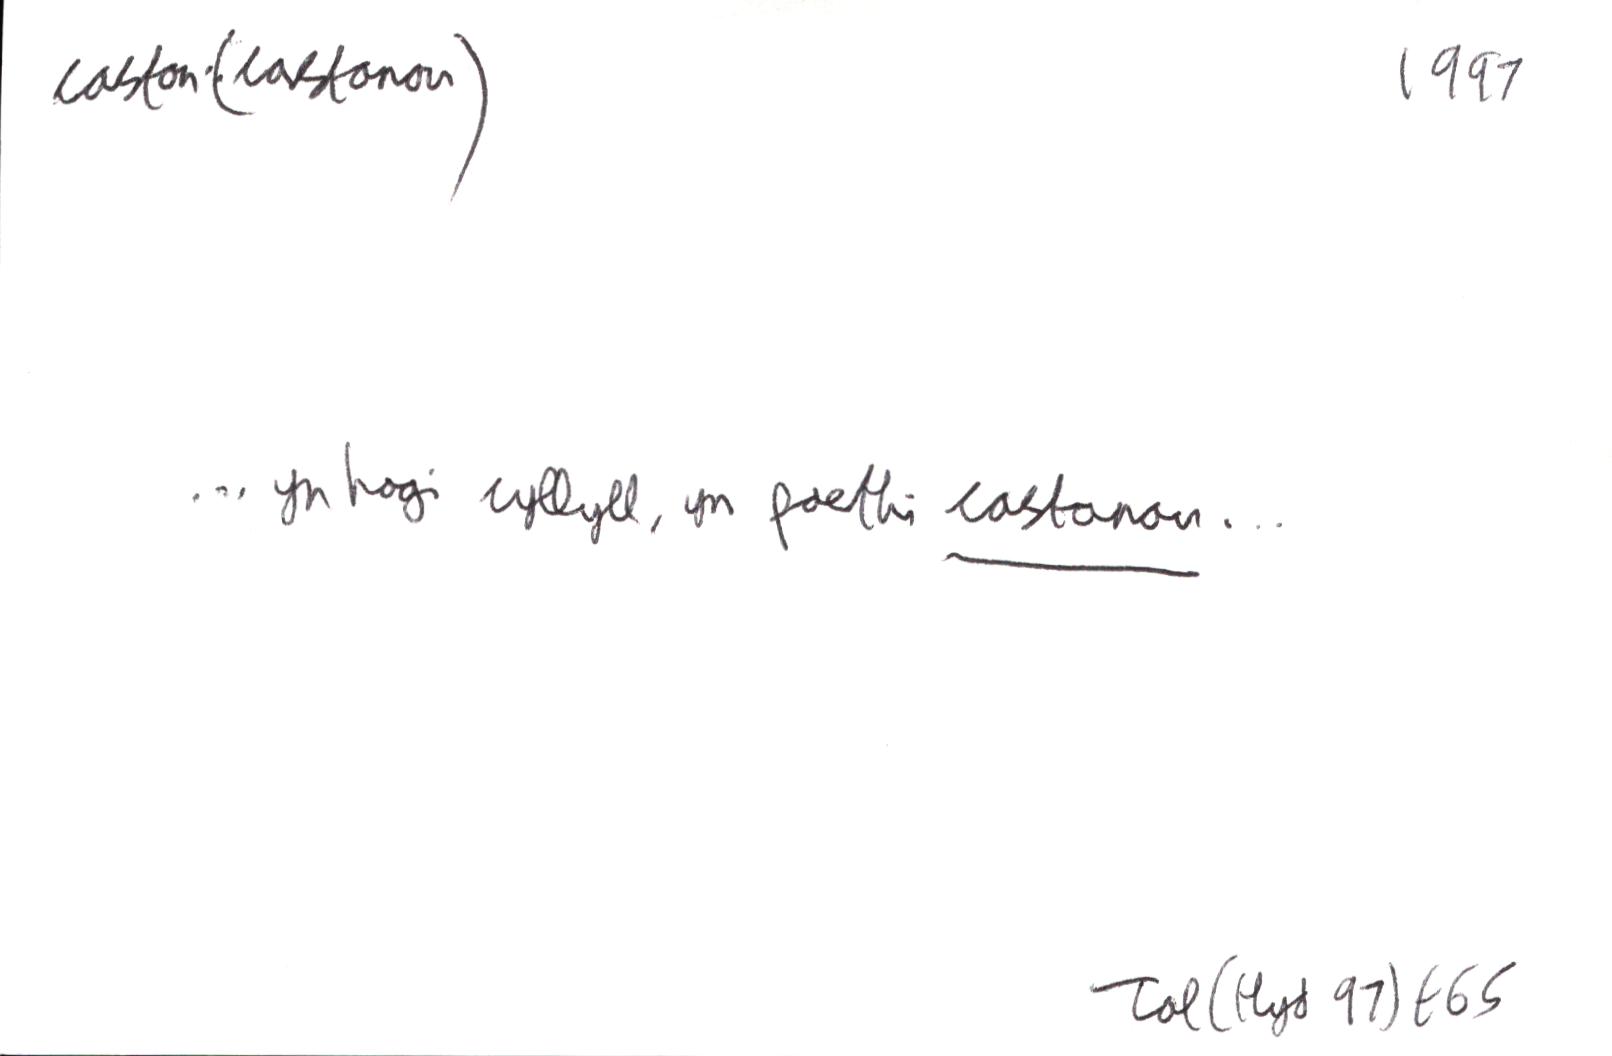 castan: (castanau) 1997
... yn hogi cyllyll, yn poethi castanau...
Tal (Hyd 97) t65